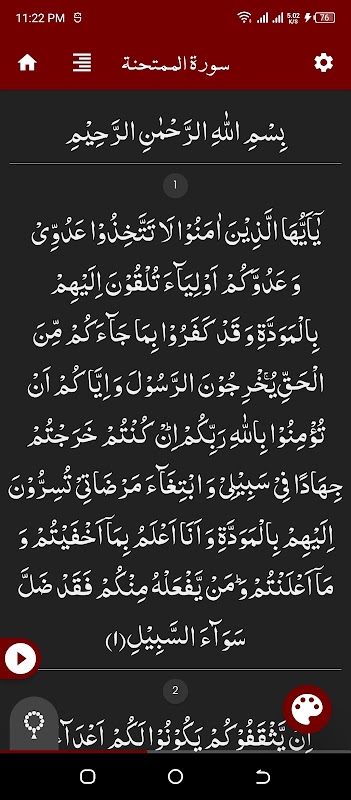 11:22 PM
5.02 K/S
76
سورة الممتحنة
بِسْمِ اللّٰهِ الرَّحْمٰنِ الرَّحِيْمِ
1
يٰۤاَيُّهَا الَّذِيْنَ اٰمَنُوْا لَا تَتَّخِذُوْا عَدُوِّىْ
وَ عَدُوَّكُمْ اَوْلِيَآءَ تُلْقُوْنَ اِلَيْهِمْ
بِالْمَوَدَّةِ وَ قَدْ كَفَرُوْا بِمَا جَآءَكُمْ مِّنَ
الْحَقِّۚ يُخْرِجُوْنَ الرَّسُوْلَ وَ اِيَّاكُمْ اَنْ
تُؤْمِنُوْا بِاللّٰهِ رَبِّكُمْؕ اِنْ كُنْتُمْ خَرَجْتُمْ
جِهَادًا فِىْ سَبِيْلِىْ وَ ابْتِغَآءَ مَرْضَاتِىْ تُسِرُّوْنَ
اِلَيْهِمْ بِالْمَوَدَّةِ وَ اَنَا اَعْلَمُ بِمَاۤ اَخْفَيْتُمْ وَ
مَاۤ اَعْلَنْتُمْؕ وَ مَنْ يَّفْعَلْهُ مِنْكُمْ فَقَدْ ضَلَّ
سَوَآءَ السَّبِيْلِ(۱)
2
اِنْ يَّثْقَفُوْكُمْ يَكُوْنُوْا لَكُمْ اَعْدَآءً